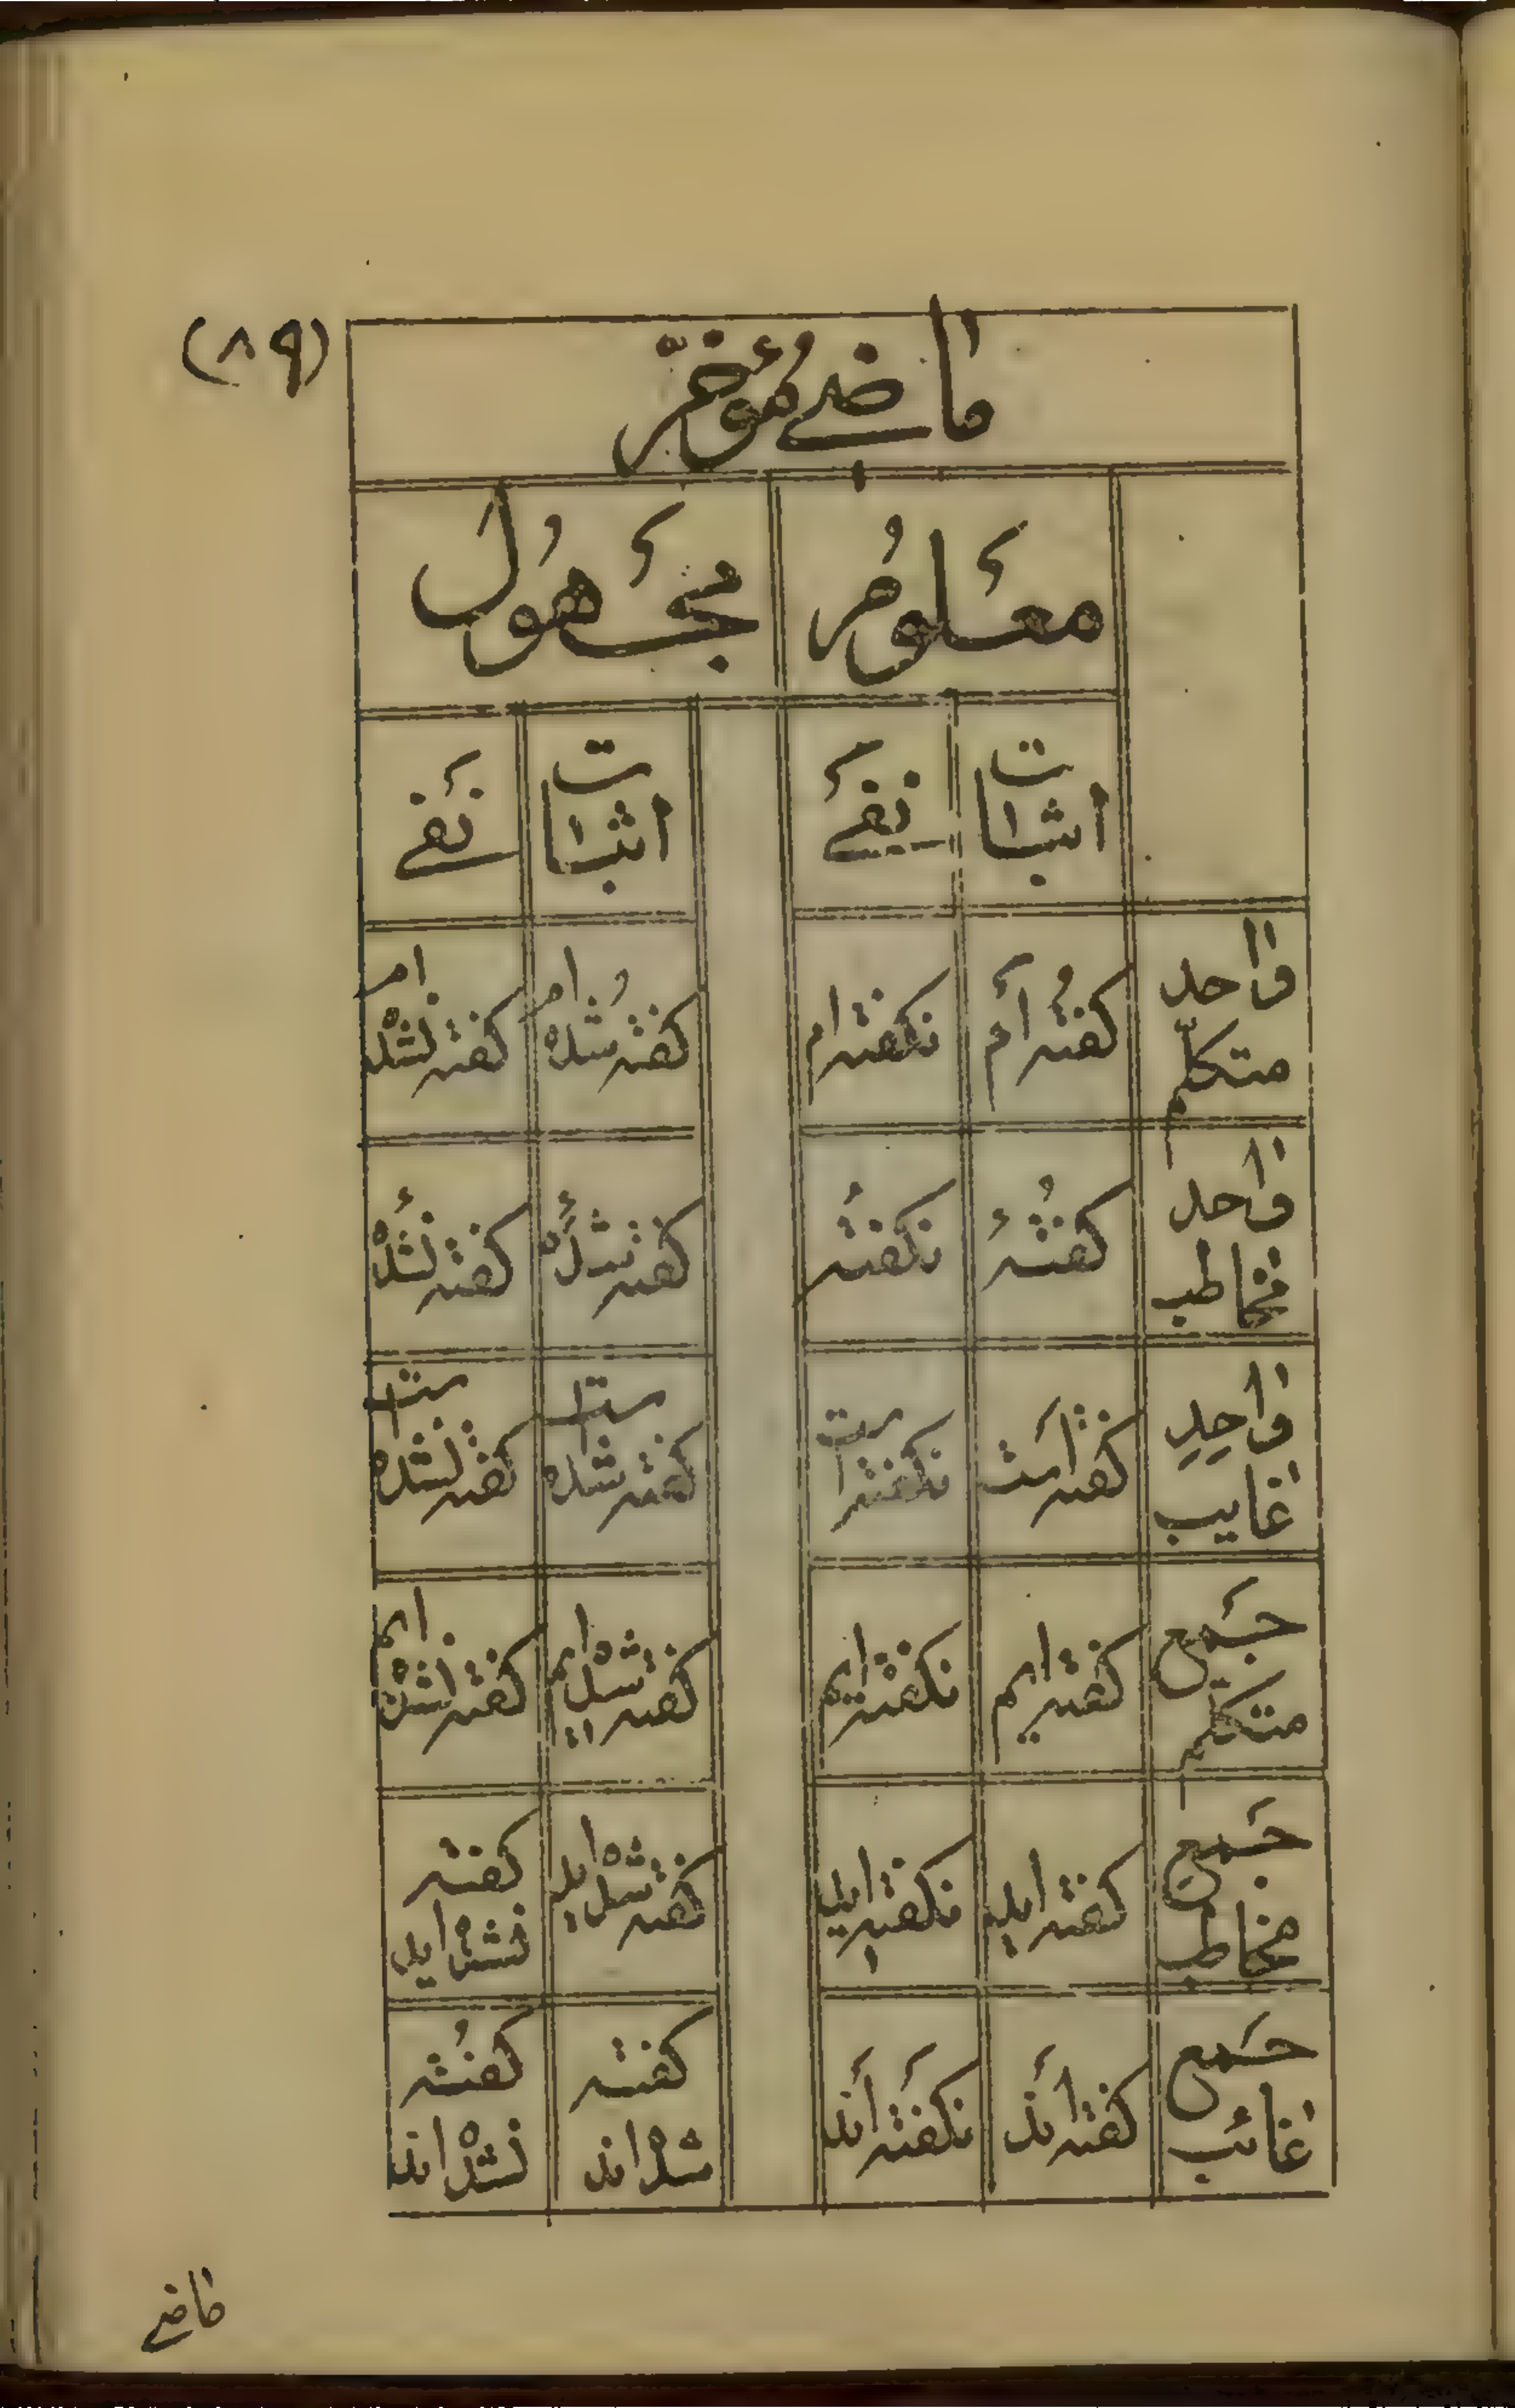 (۸۹)
ماضے مُؤخّر
مَعلُوم مَجهُول
اثبات نَفے اثبات نَفے
واحد متکلّم کفتُه اَم نکفته ام کفته شُده ام کفته نشده ام
واحد مخاطب کفتُهٔ نکفتهٔ کفته شدهٔ کفته نشدهٔ
واحِدِ غایب کفته اَست نکفته است کفته شده است کفته نشده است
جَمع متکلّم کفته ایم نکفته ایم کفته شده ایم کفته نشده ایم
جَمع مخاطب کفته اید نکفته اید کفته شده اید کفته نشده اید
جَمع غائب کفته اَند نَکفته اَند کفته شده اند کفتُه نشده اند
ماضے